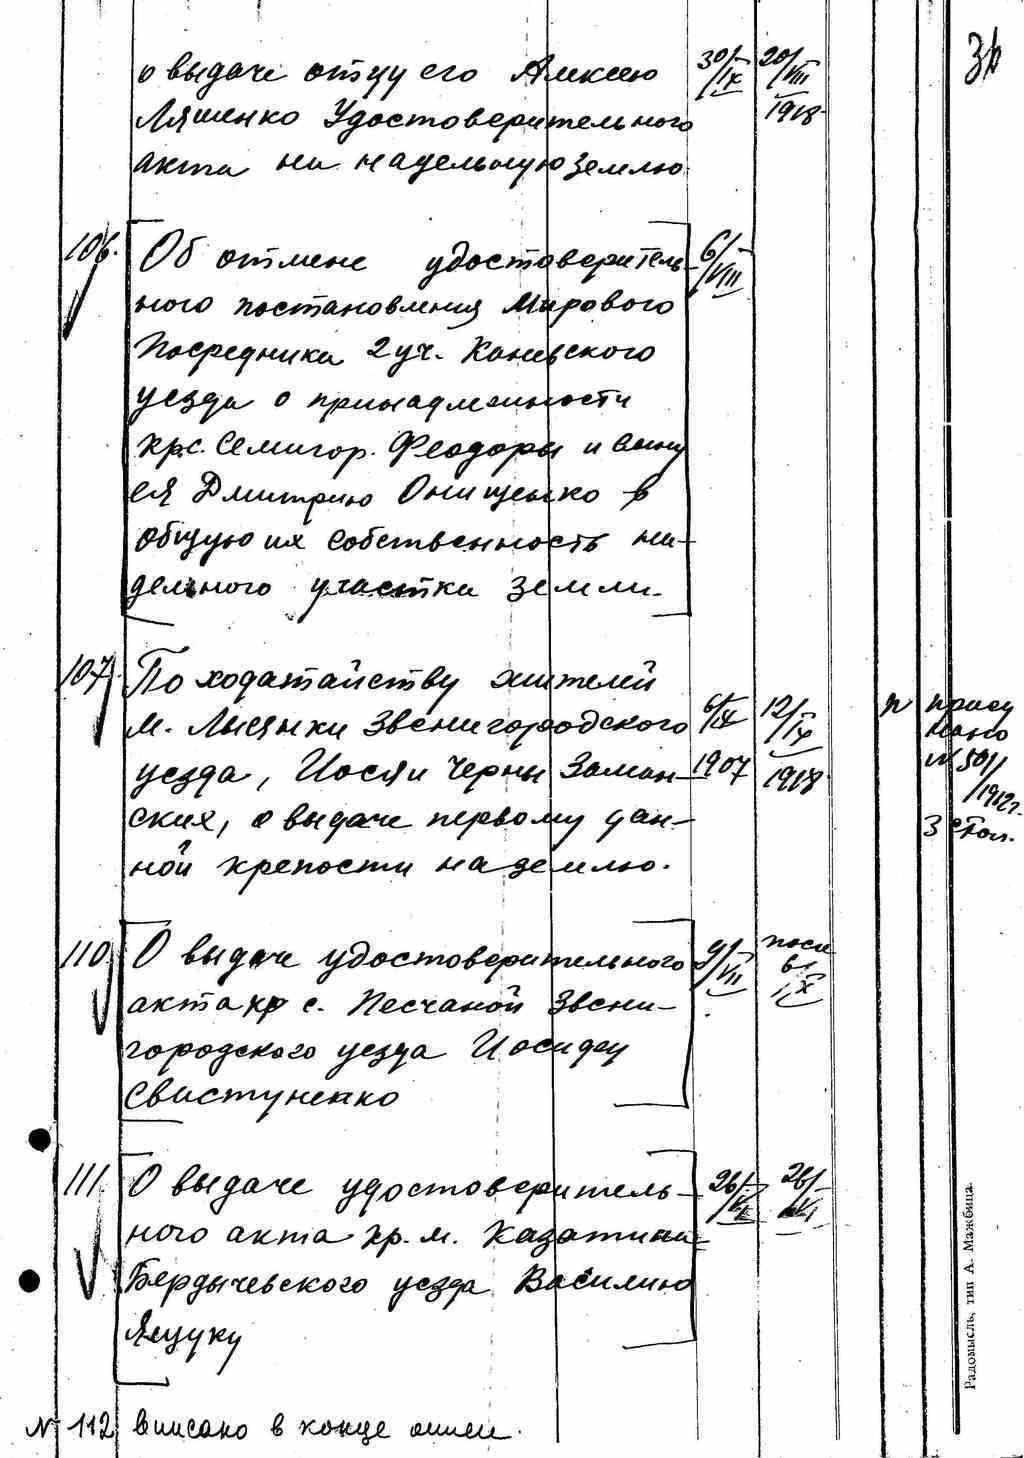 36
о выдаче отцу его Алексею 30/IX 20/VIII
Ляшенко Удостоверительного 1918
акта на надельную землю
106. Об отмене удостоверитель- 6/VIII
ного постановления Мирового
Посредника 2 уч. Каневского
уезда о принадлежности
кр. с. Семигор. Феодоры и сыну
ея Дмитрию Онищенко в
общую их собственность на-
дельного участка земли.
107. По ходатайству жителей
м. Лысянки Звенигородского 6/IX 12/IX п
уезда, Иося и Черны Заман- 1907 1918 № 501/
ских, о выдаче первому дан- 1912г.
ной крепости на землю. 3 стол.
110. О выдаче удостоверительного 9/VII
акта кр с. Песчаной Звени-
городского уезда Иосифу
Свистуненко
111. О выдаче удостоверитель- 26/VI 26/VI
ного акта кр. м. Казатина
Бердычевского уезда Василию
Ящуку
№ 112 вписано в конце описи.
Радомысль, тип А. Мажбица.